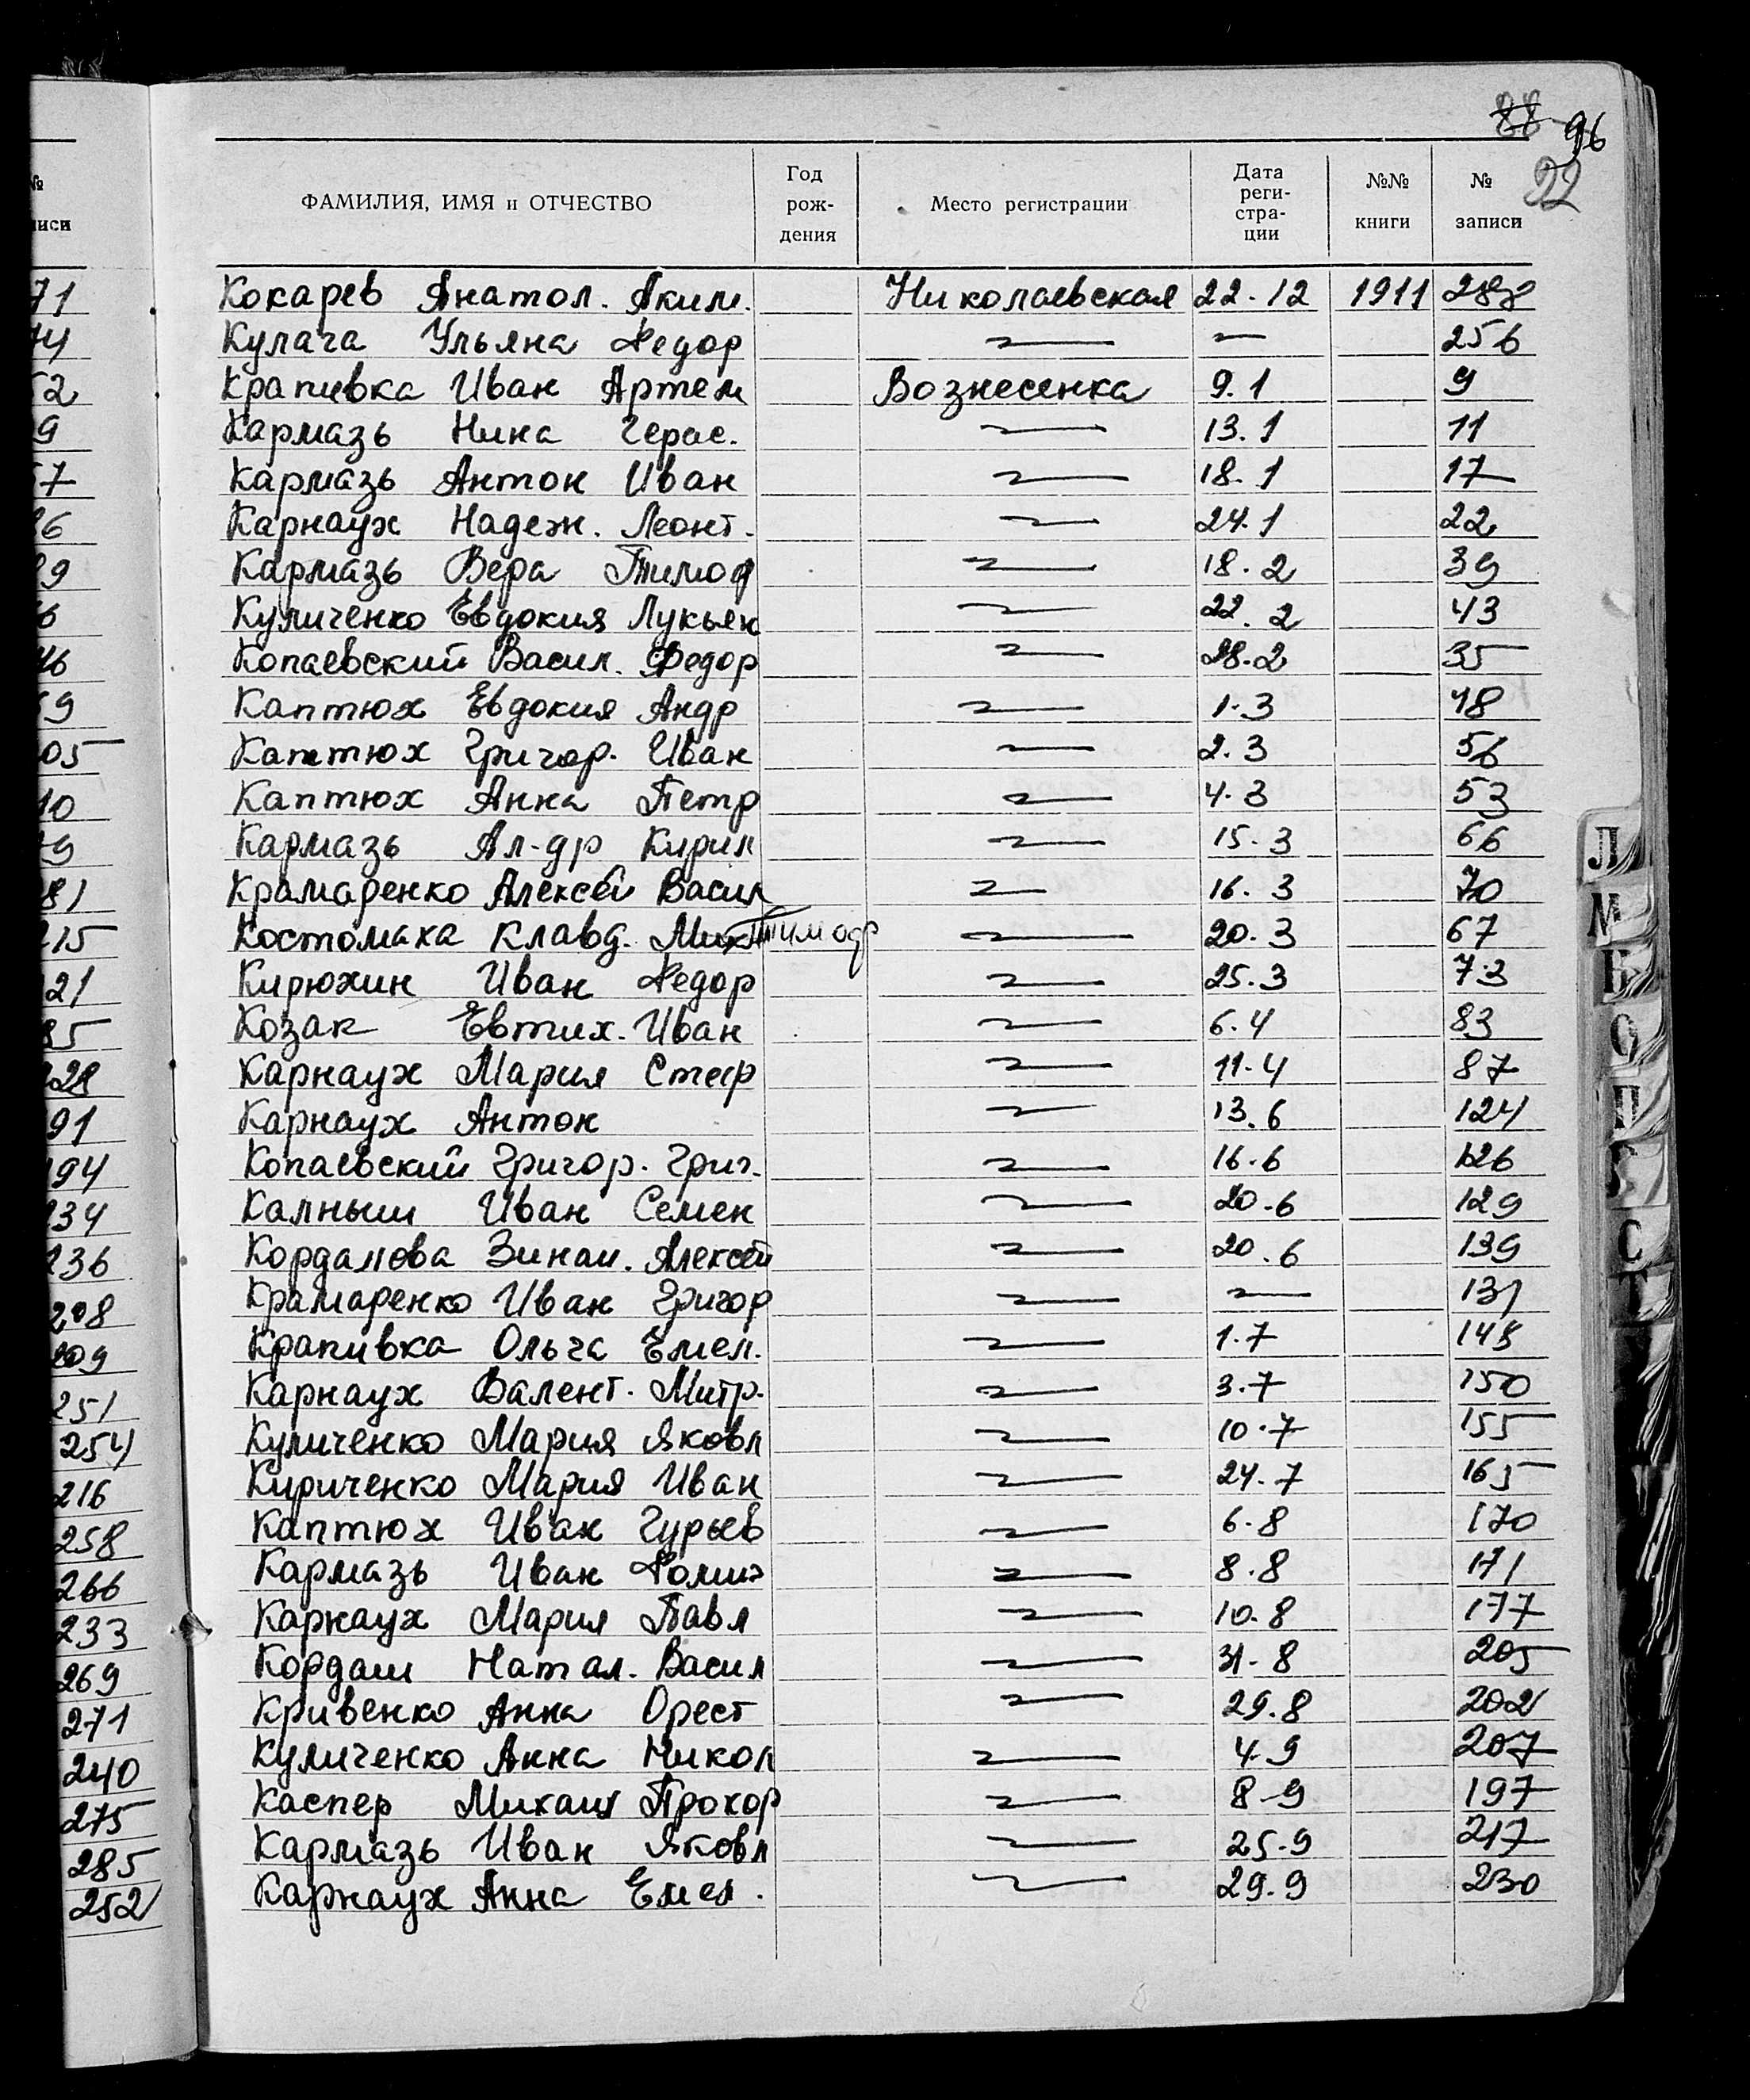 88 96
22
ФАМИЛИЯ, ИМЯ и ОТЧЕСТВО Год рож- дения Место регистрации Дата реги- стра- ции №№ книги № записи
Кокарев Анатол. Аким. Николаевская 22.12 1911 288
Кулага Ульяна Федор — — 256
Крапивка Иван Артем Вознесенка 9.1 9
Кармазь Нина Герас. — 13.1 11
Кармазь Антон Иван — 18.1 17
Карнаух Надеж. Леонт. — 24.1 22
Кармазь Вера Тимоф — 18.2 39
Куличенко Евдокия Лукьян — 22.2 43
Копаевский Васил. Федор — 28.2 35
Каптюх Евдокия Андр — 1.3 48
Каптюх Григор. Иван — 2.3 56
Каптюх Анна Петр — 4.3 53
Кармазь Ал-др Кирил — 15.3 66
Крамаренко Алексей Васил — 16.3 70
Костомаха Клавд. Тимоф — 20.3 67
Кирюхин Иван Федор — 25.3 73
Козак Евтих. Иван — 6.4 83
Карнаух Мария Стеф — 11.4 87
Карнаух Антон — 13.6 124
Копаевский Григор. Григ. — 16.6 126
Калныш Иван Семен — 20.6 129
Кордапова Зинаи. Алексей — 20.6 139
Крамаренко Иван Григор — — 131
Крапивка Ольга Емел. — 1.7 148
Карнаух Валент. Митр. — 3.7 150
Куличенко Мария Яковл — 10.7 155
Кириченко Мария Иван — 24.7 165
Каптюх Иван Гурьев — 6.8 170
Кармазь Иван Фомич — 8.8 171
Карнаух Мария Павл — 10.8 177
Кордаш Натал. Васил — 31.8 205
Кривенко Анна Орест — 29.8 202
Куличенко Анна Никол — 4.9 207
Каспер Михаил Прохор — 8.9 197
Кармазь Иван Яковл — 25.9 217
Карнаух Анна Емел. — 29.9 230
Л
М
О
П
С
Т